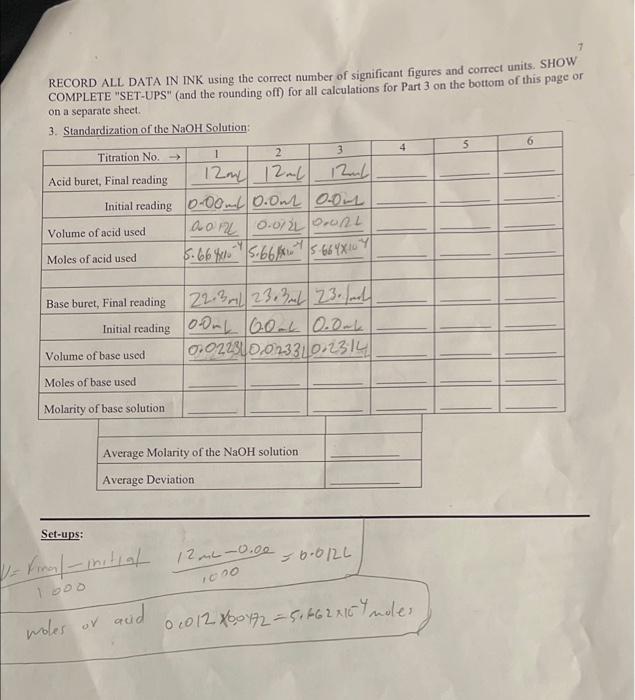 7
RECORD ALL DATA IN INK using the correct number of significant figures and correct units. SHOW
COMPLETE "SET-UPS" (and the rounding off) for all calculations for Part 3 on the bottom of this page or
on a separate sheet.
3. Standardization of the NaOH Solution:
Titration No. → 1 2 3 4 5 6
Acid buret, Final reading 12mL 12mL 12mL
Initial reading 0.00mL 0.0mL 0.0mL
Volume of acid used 0.012L 0.012L 0.012L
Moles of acid used 5.664x10⁻⁴ 5.664x10⁻⁴ 5.664x10⁻⁴
Base buret, Final reading 22.3mL 23.3mL 23.1mL
Initial reading 0.0mL 0.0mL 0.0mL
Volume of base used 0.0223L 0.0233L
Moles of base used
Molarity of base solution
Average Molarity of the NaOH solution
Average Deviation
Set-ups:
V= Final - initial / 1000 12mL-0.00 / 1000 = 0.012L
moles of acid 0.012 x 0.0472 = 5.662x10⁻⁴ moles